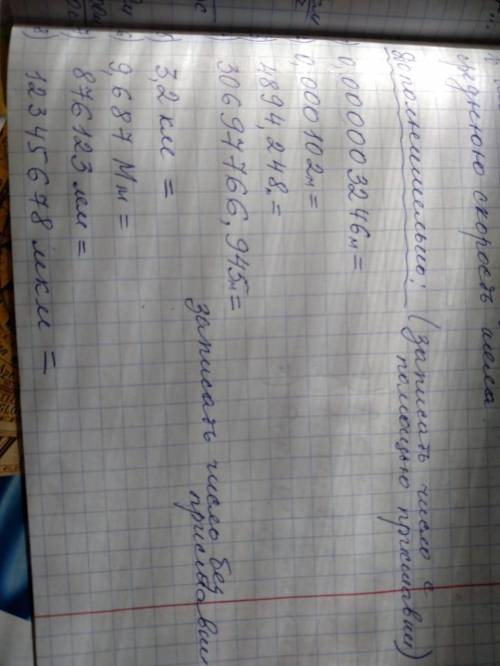 среднюю скорость тела.
Дополнительно: (записать число с
помощью приставки)
) 0,000003246м=
) 0,000102м=
) 4894,248м=
) 30697766,945м=
записать число без
приставки
) 3,2 км =
) 9,687 Мм =
) 876123 мм =
8) 12345678 мкм =